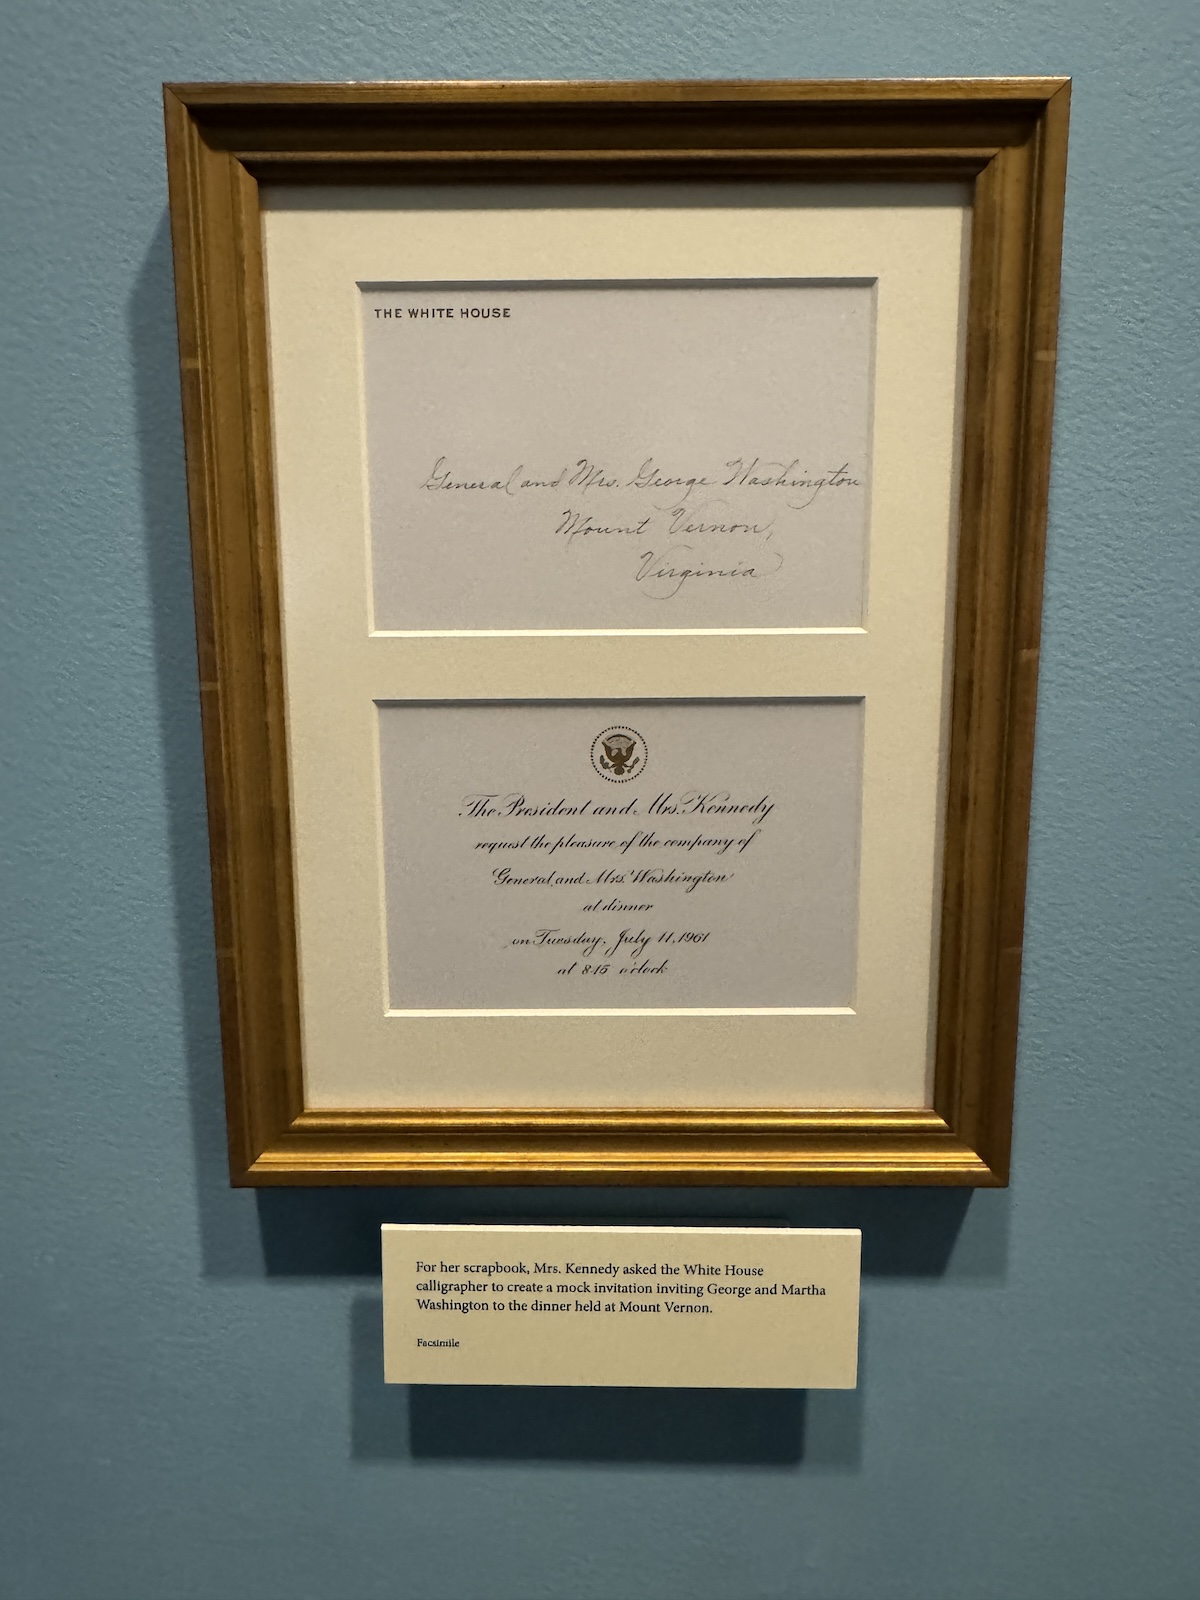 THE WHITE HOUSE
General and Mrs. George Washington
Mount Vernon,
Virginia
The President and Mrs. Kennedy
request the pleasure of the company of
General and Mrs. Washington
at dinner
on Tuesday, July 11, 1961
at 8:15 o'clock
For her scrapbook, Mrs. Kennedy asked the White House
calligrapher to create a mock invitation inviting George and Martha
Washington to the dinner held at Mount Vernon.
Facsimile